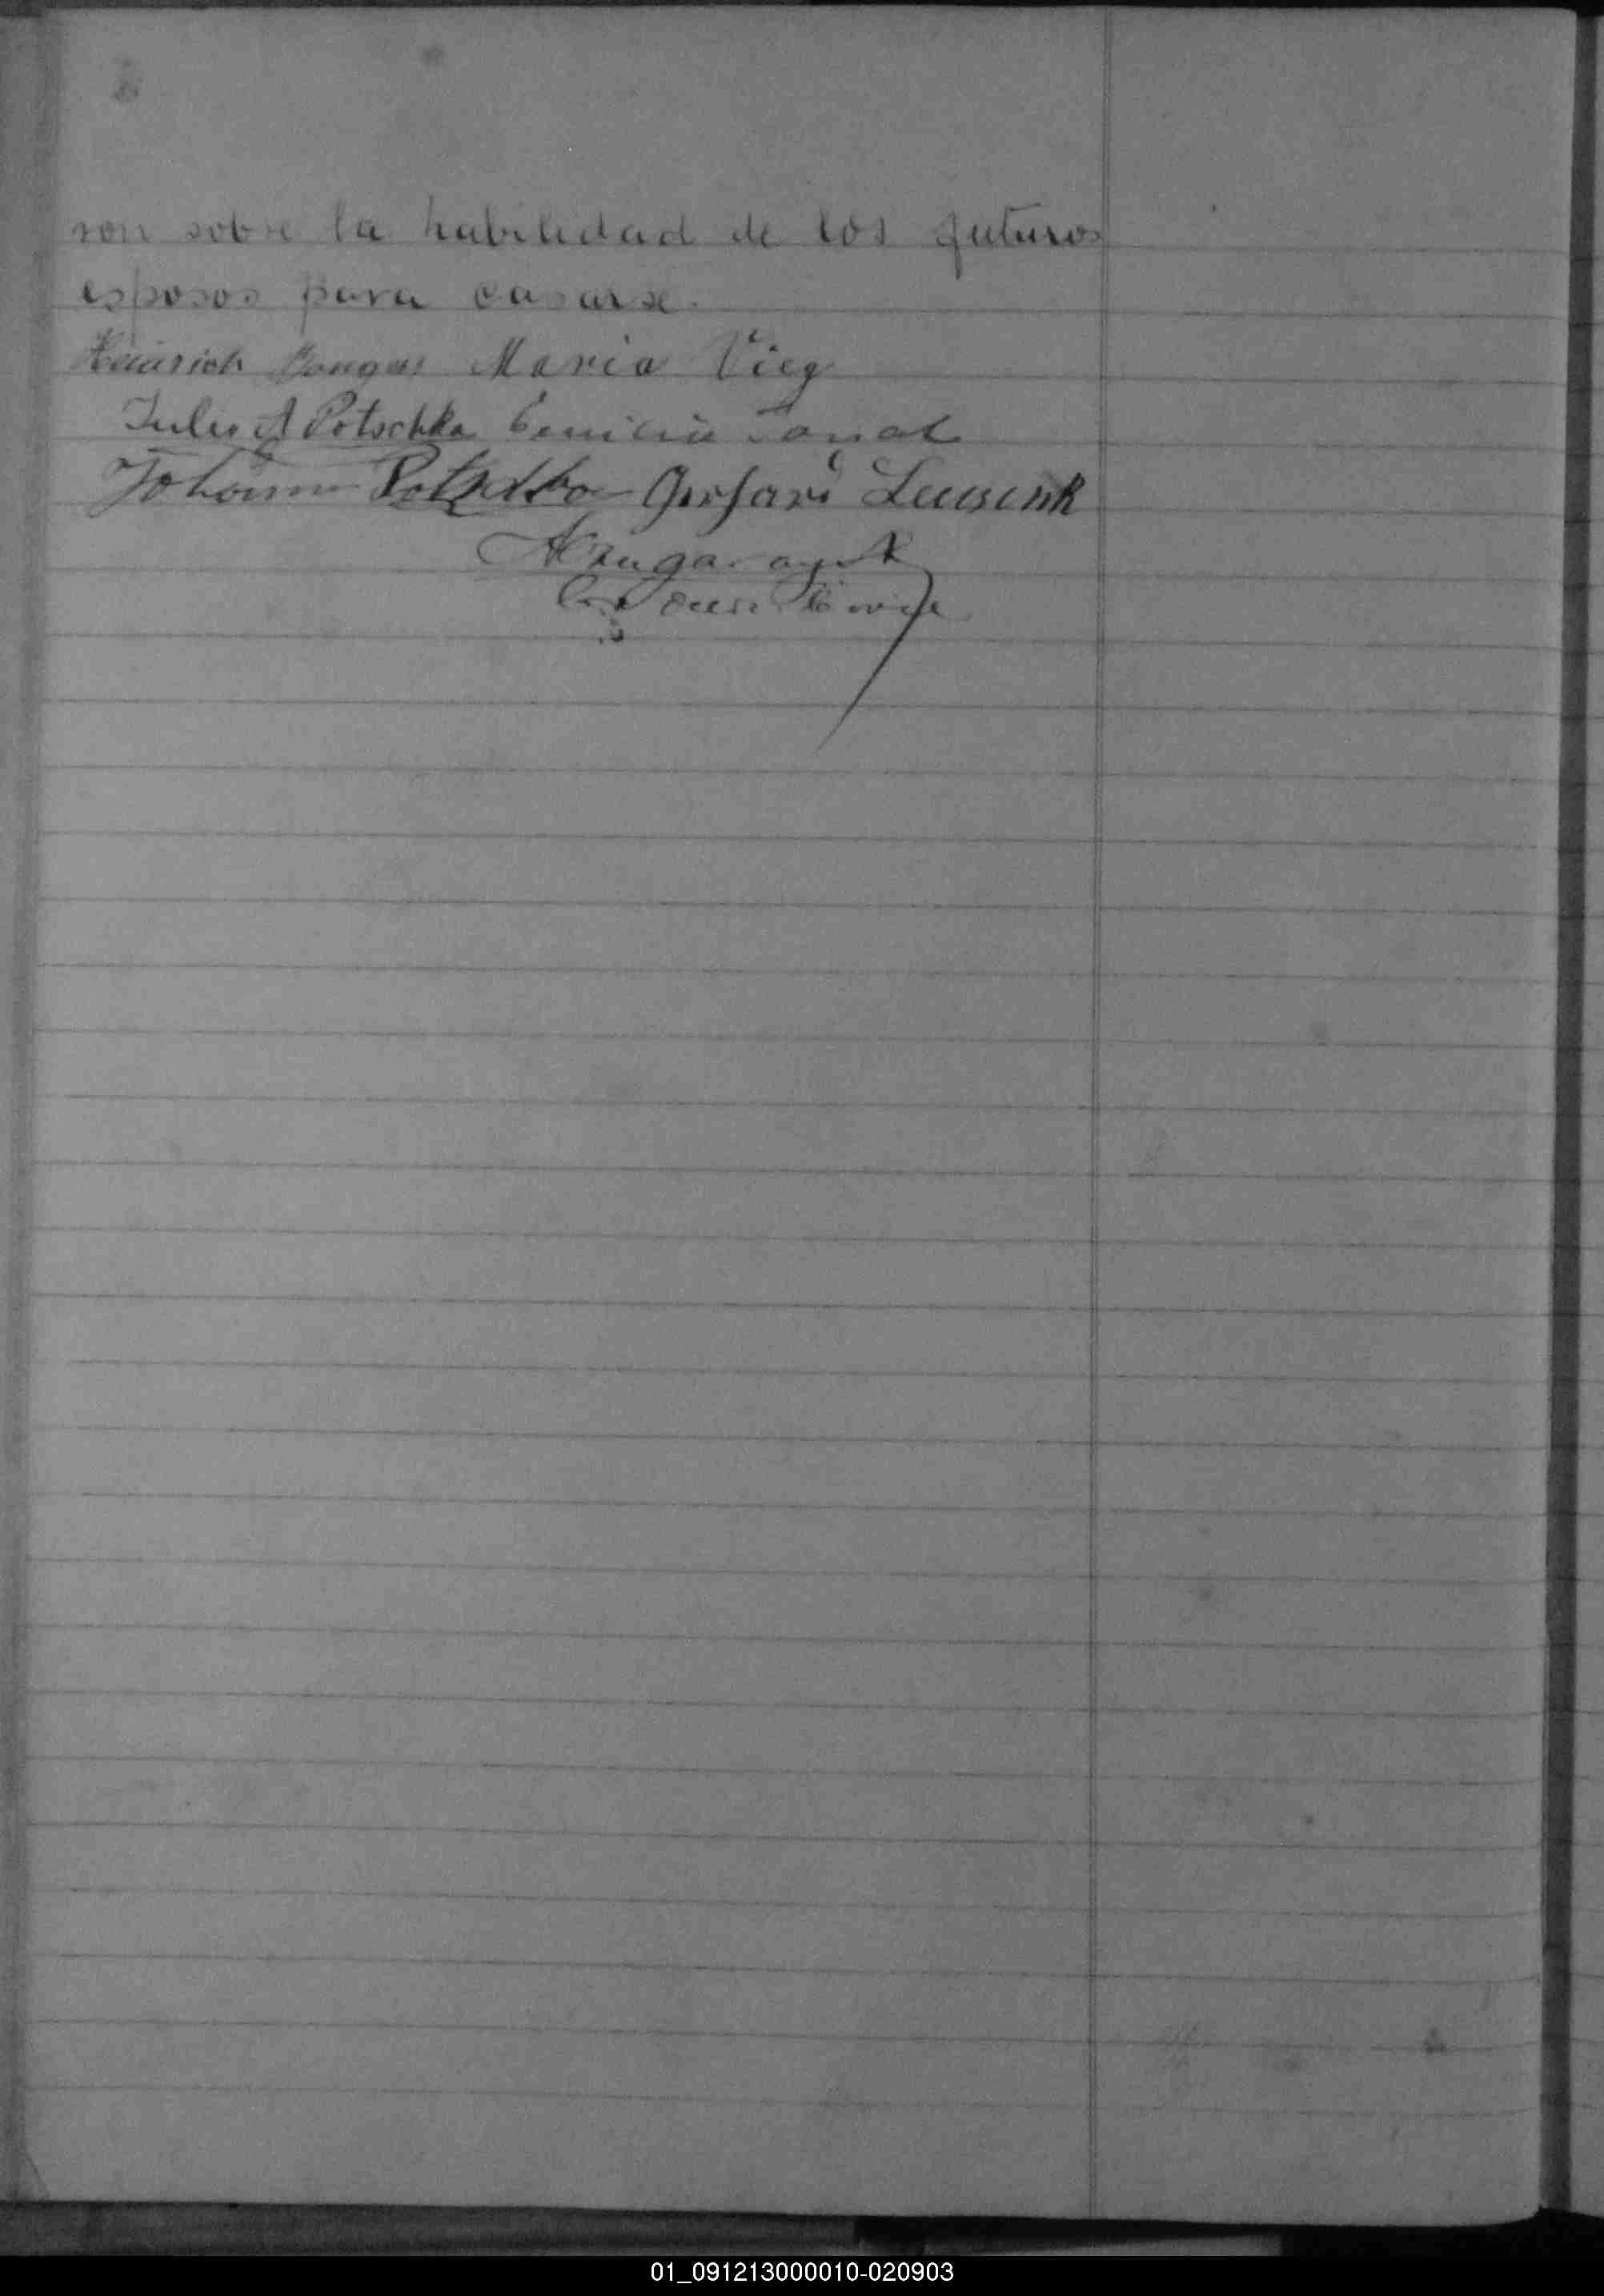 ron sobre la habilidad de los futuros
esposos para casarse.
Heinrich Maria Vieg
Julio A Potschka Emilia
Johann Potschka Gerhard Leusink
01_091213000010-020903